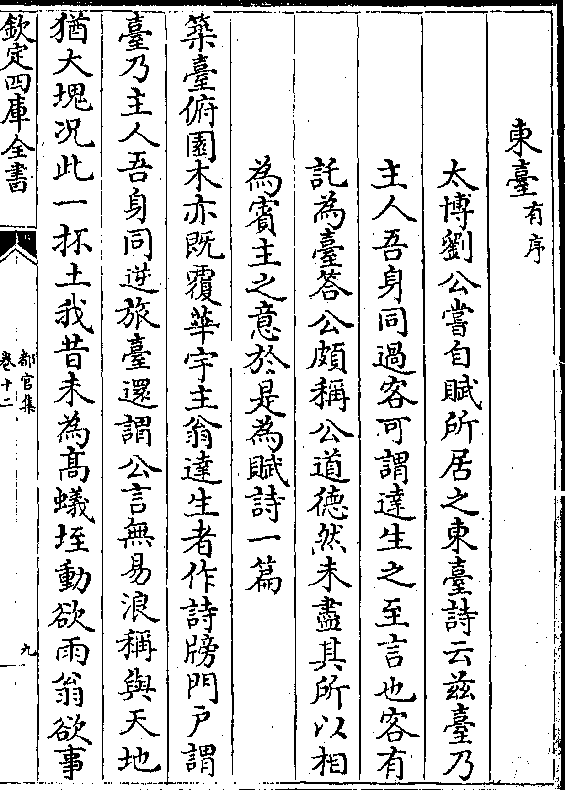 東臺有序
太博劉公嘗自賦所居之東臺詩云兹臺乃
主人吾身同過客可謂達生之至言也客有
託為臺答公頗稱公道德然未盡其所以相
為賓主之意於是為賦詩一篇
築臺俯園木亦既覆華宇主翁達生者作詩牓門戸謂
臺乃主人吾身同逆旅臺還謂公言無易浪稱與天地
猶大塊况此一抔土我昔未為髙蟻垤動欲雨翁欲事
欽定四庫全書
都官集
卷十二
九